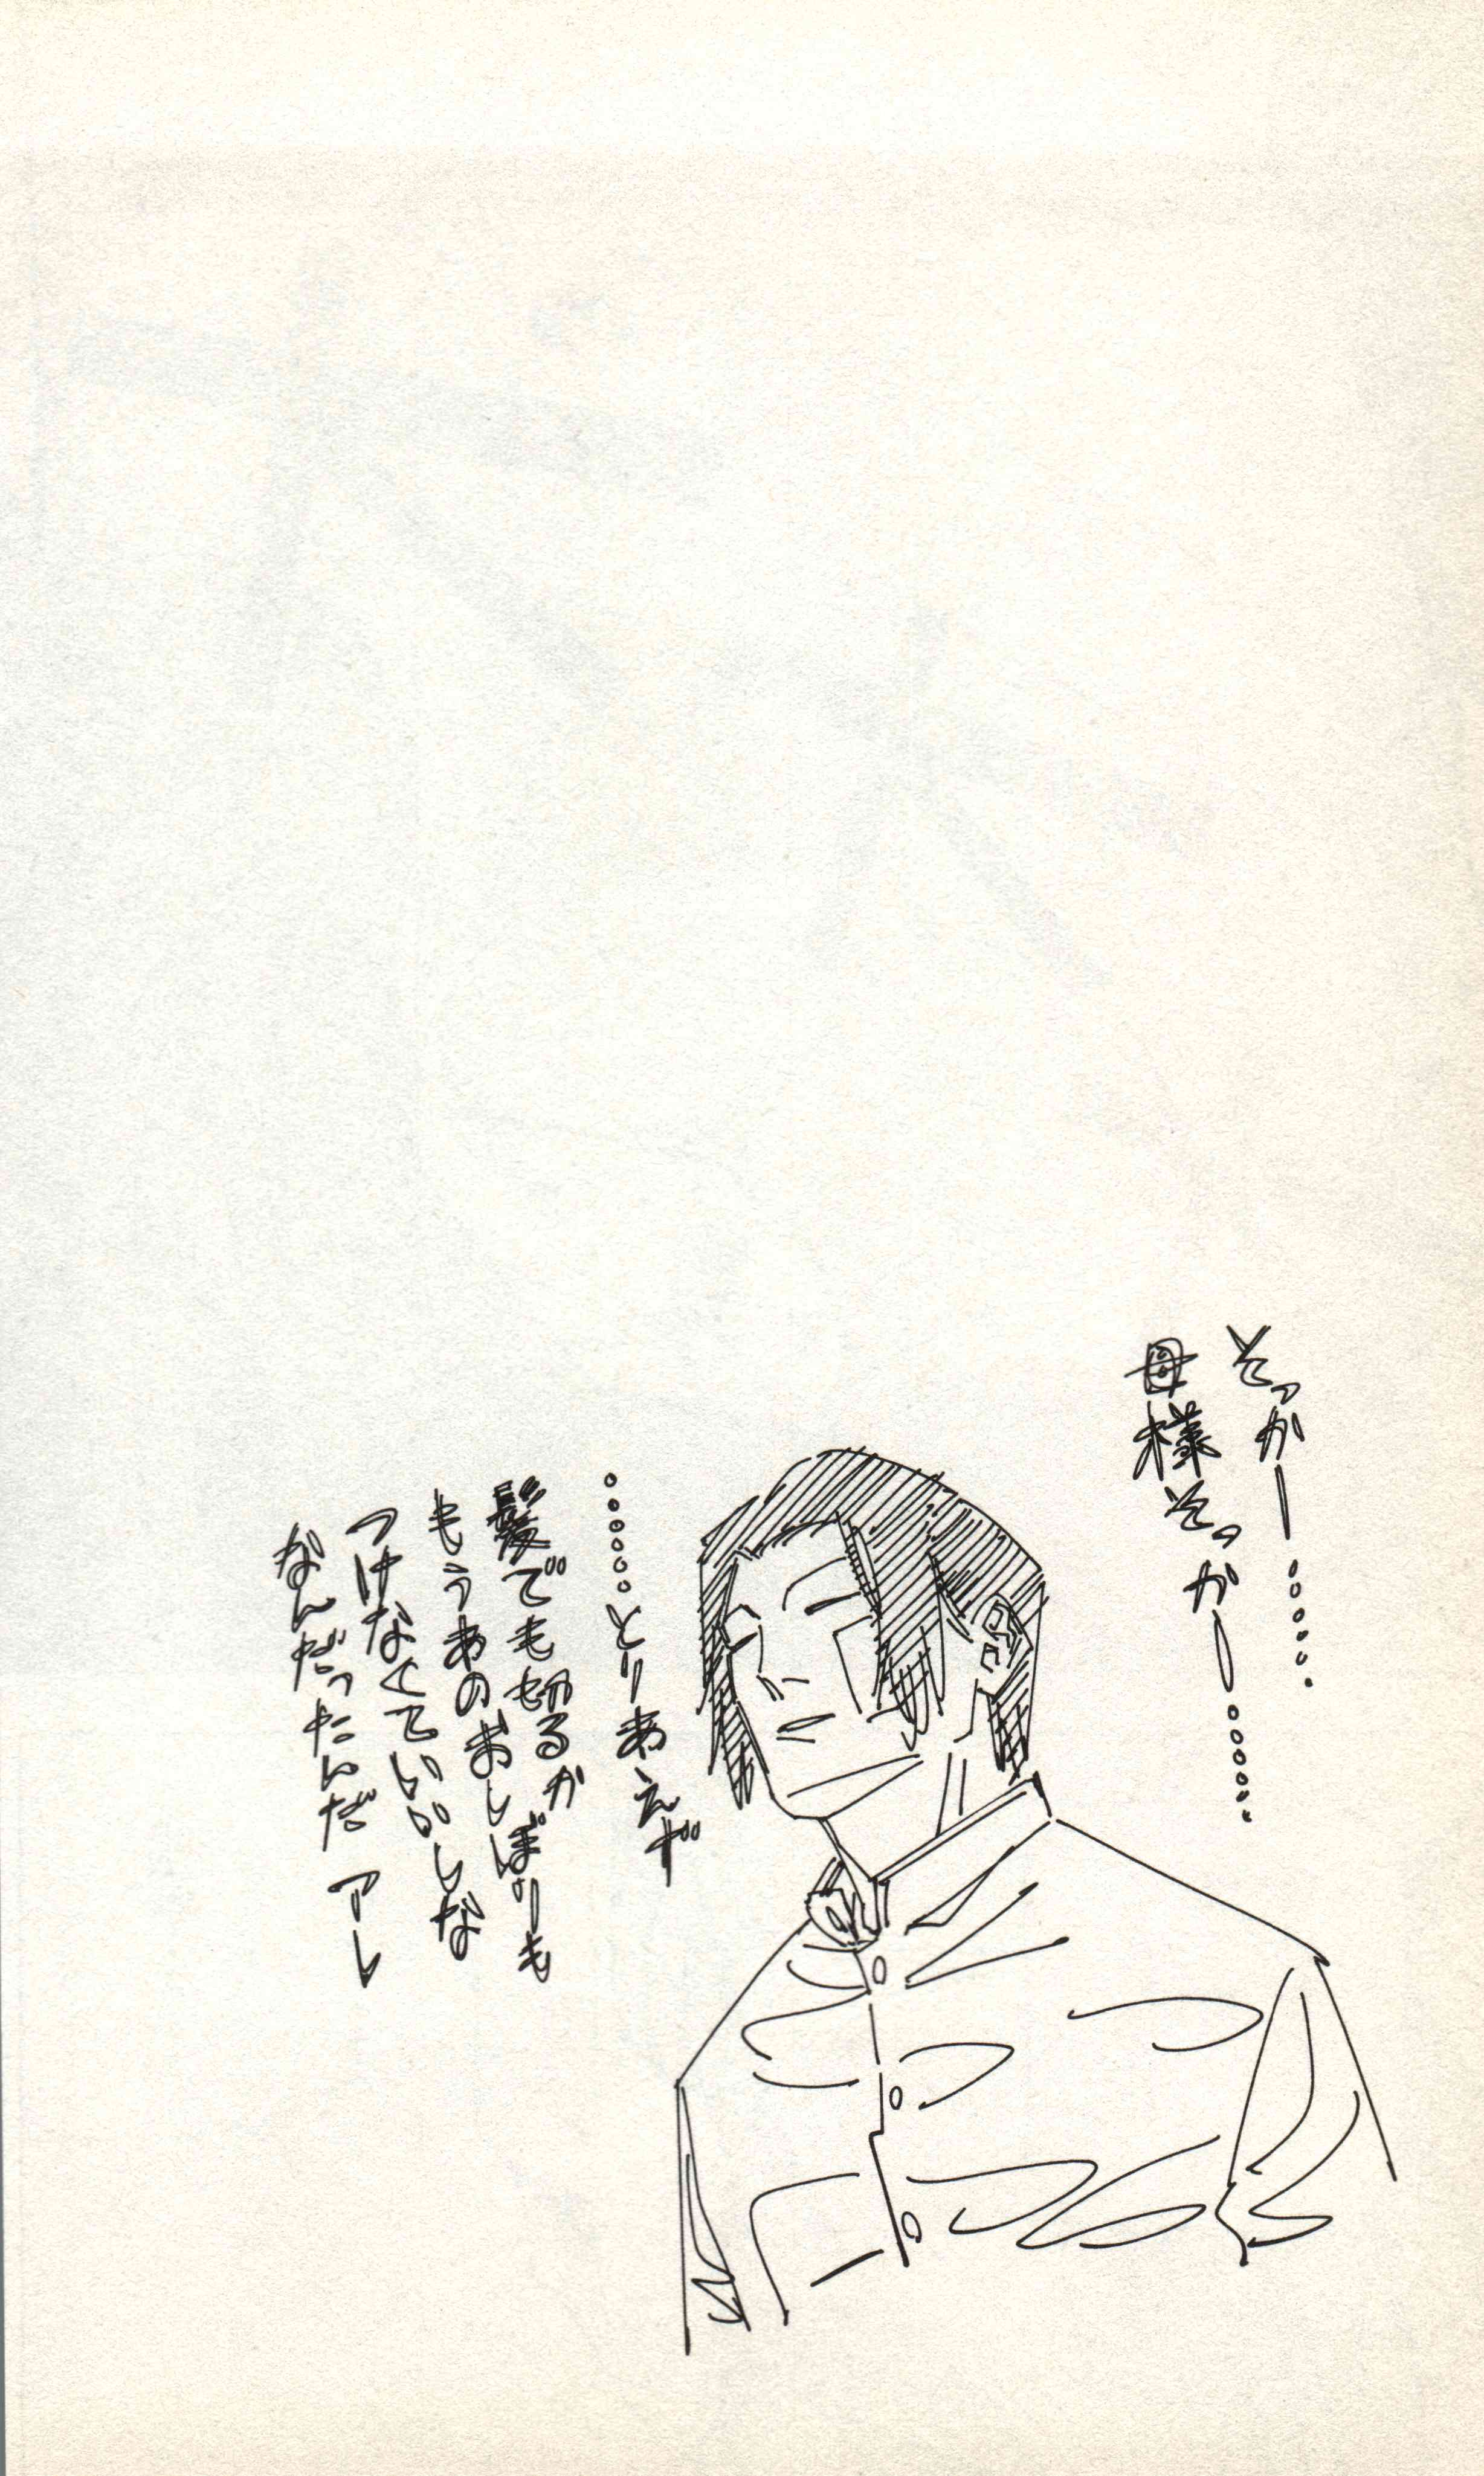 そっかー……
母様そっかー……
……とりあえず
髪でも切るか
もうあのおしぼりも
つけなくていいしな
なんだったんだ アレ